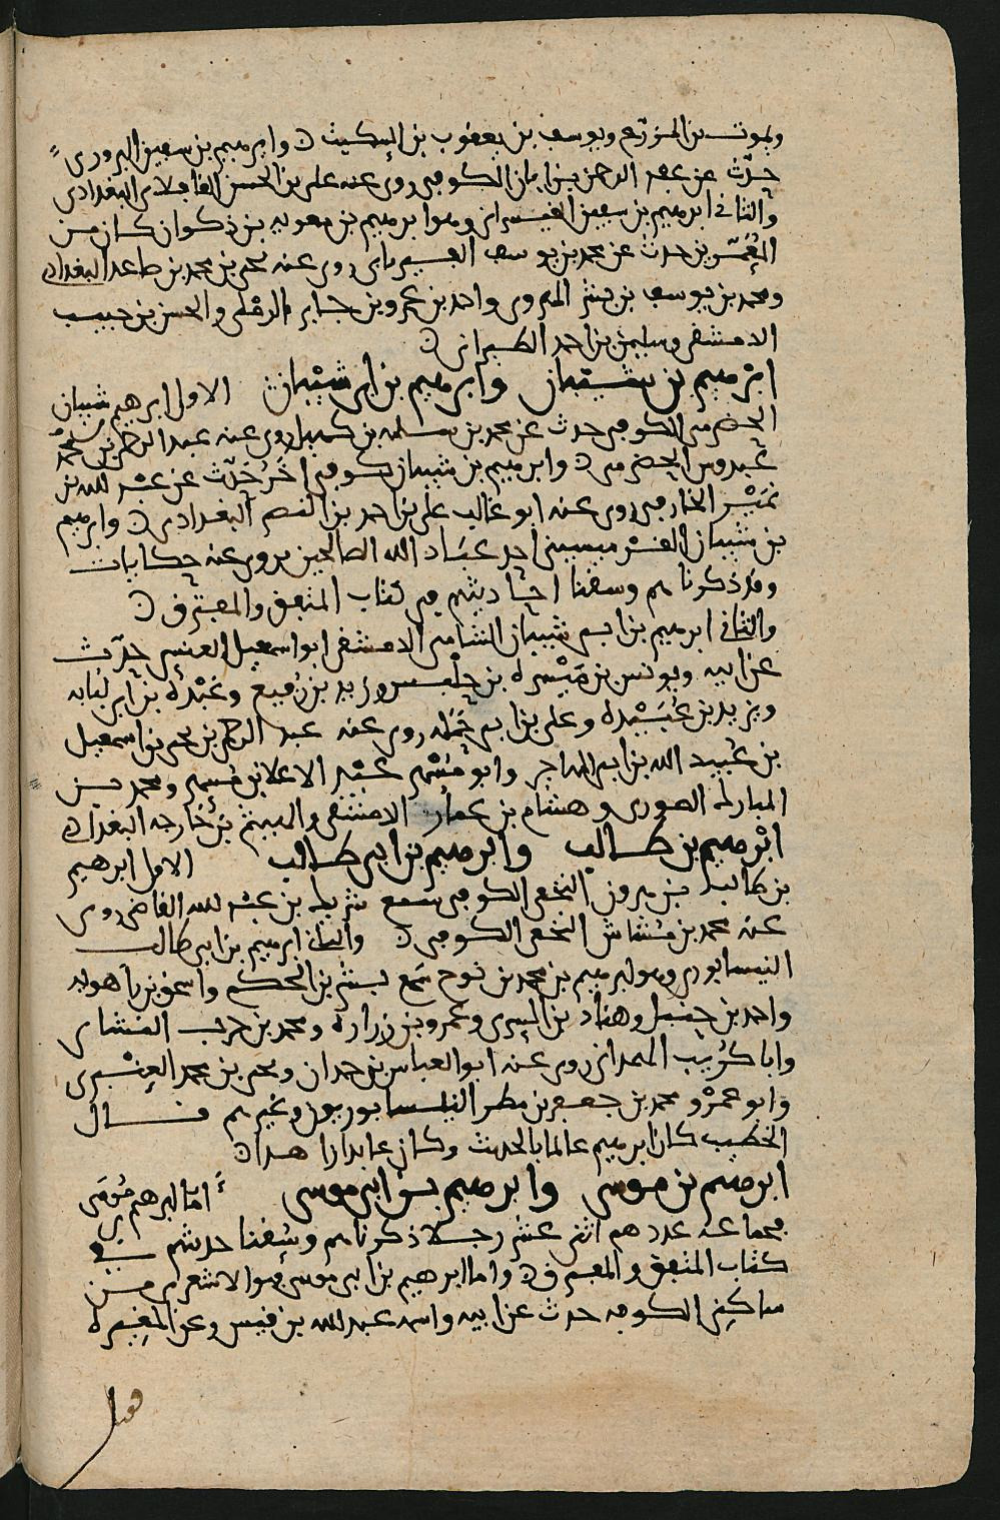 ويموت بن المزرع ويوسف بن يعقوب بن السكيت ٥ وابرهيم بن سفين الهروى
حدّث عن عبد الرحمن بن ابان الكوفى روى عنه على بن الحسن القافلانى البغدادى
والثانى ابرهيم بن سفين القيسرانى وهو ابرهيم بن معويه بن ذكوان كان من
المُعَمَّرين حدث عن محمد بن يوسف الفريابى روى عنه يحيى بن محمد بن صاعد البغدادى
ومحمد بن يوسف بن بشر الهروى واحمد بن عمرو بن جابر الرملى والحسن بن حبيب
الدمشقى وسليمن بن احمد الطبرانى ٥
ابرهيم بن شيبان وابرهيم بن ابى شيبان الاول ابرهيم شيبان
الحضرمى الكوفى حدث عن محمد بن مسلمه بن كهيل روى عنه عبد الرحمن بن مسلم
عبدوس الحضرمى ٥ وابرهيم بن شيبان كوفى اخر حدّث عن عبد الله بن
نمير الخارفى روى عنه ابو غالب على بن احمد بن النضر البغدادى ٥ وابرهيم
بن شيبان القرميسينى احد عباد الله الصالحين يروى عنه حكايات
وقد ذكرناهم وسقنا احاديثهم فى كتاب المتفق والمفترق ٥
والثانى ابرهيم بن ابى شيبان الشامى الدمشقى ابو اسمعيل العنسى حدّث
عن ابيه ويونس بن ميسره بن حلبس وزيد بن رفيع وعبده بن ابى لبابه
ويزيد بن عبيده وعلى بن ابى حمله روى عنه عبد الرحمن بن يحيى بن اسمعيل
بن عبيد الله بن ابى المهاجر وابو مسهر عبد الاعلا بن مسهر ومحمد بن
المبارك الصورى وهشام بن عمار الدمشقى والهيثم بن خارجه البغدادى
ابرهيم بن طالب وابرهيم بن ابى طالب الاول ابرهيم
بن طالب بن هرون النخعى الكوفى سمع شريك بن عبد الله القاضى روى
عنه محمد بن مشاش النخعى الكوفى ٥ والثانى ابرهيم بن ابى طالب
النيسابورى وهو ابرهيم بن محمد بن نوح سمع بشر بن الحكم واسحق بن راهويه
واحمد بن حنبل وهناد بن السرى وعمرو بن زراره ومحمد بن حرب النشاى
وابا كريب الهمدانى روى عنه ابو العباس بن حمدان ويحيى بن محمد العنبرى
وابو عمرو محمد بن جعفر بن مطر النيسابوريون وغيرهم قال
الخطيب كان ابرهيم عالما بالحديث وكان عابدا زاهدا ٥
ابرهيم بن موسى وابرهيم بن ابى موسى امّا ابرهيم بن موسى
فجماعه عددهم اثنى عشر رجلا ذكرناهم وسقنا حديثهم فى
كتاب المتفق والمفترق ٥ واما ابرهيم بن ابى موسى فهو الاشعرى من
ساكنى الكوفه حدث عن ابيه واسمه عبد الله بن قيس وعن المغيره